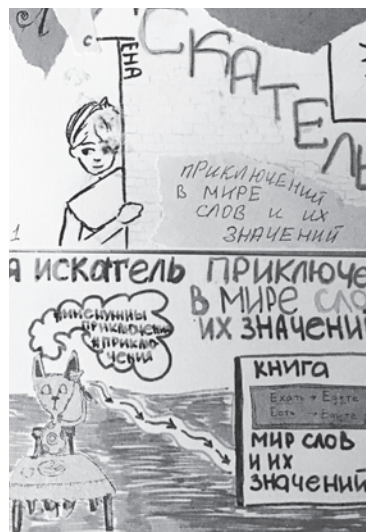 Я
ИСКАТЕЛЬ
СТЕНА
ПРИКЛЮЧЕНИЙ
В МИРЕ
СЛОВ И ИХ
ЗНАЧЕНИЙ
1
Я ИСКАТЕЛЬ ПРИКЛЮЧЕ
В МИРЕ СЛО
ИХ ЗНАЧЕНИ
#МНЕНУЖНЫ
ПРИКЛЮЧЕНИЯ
#ПРИКЛЮ
ЧЕНИЯ
КНИГА
Ехать → Едете
Есть → Едите
МИР СЛОВ
И ИХ
ЗНАЧЕНИЙ